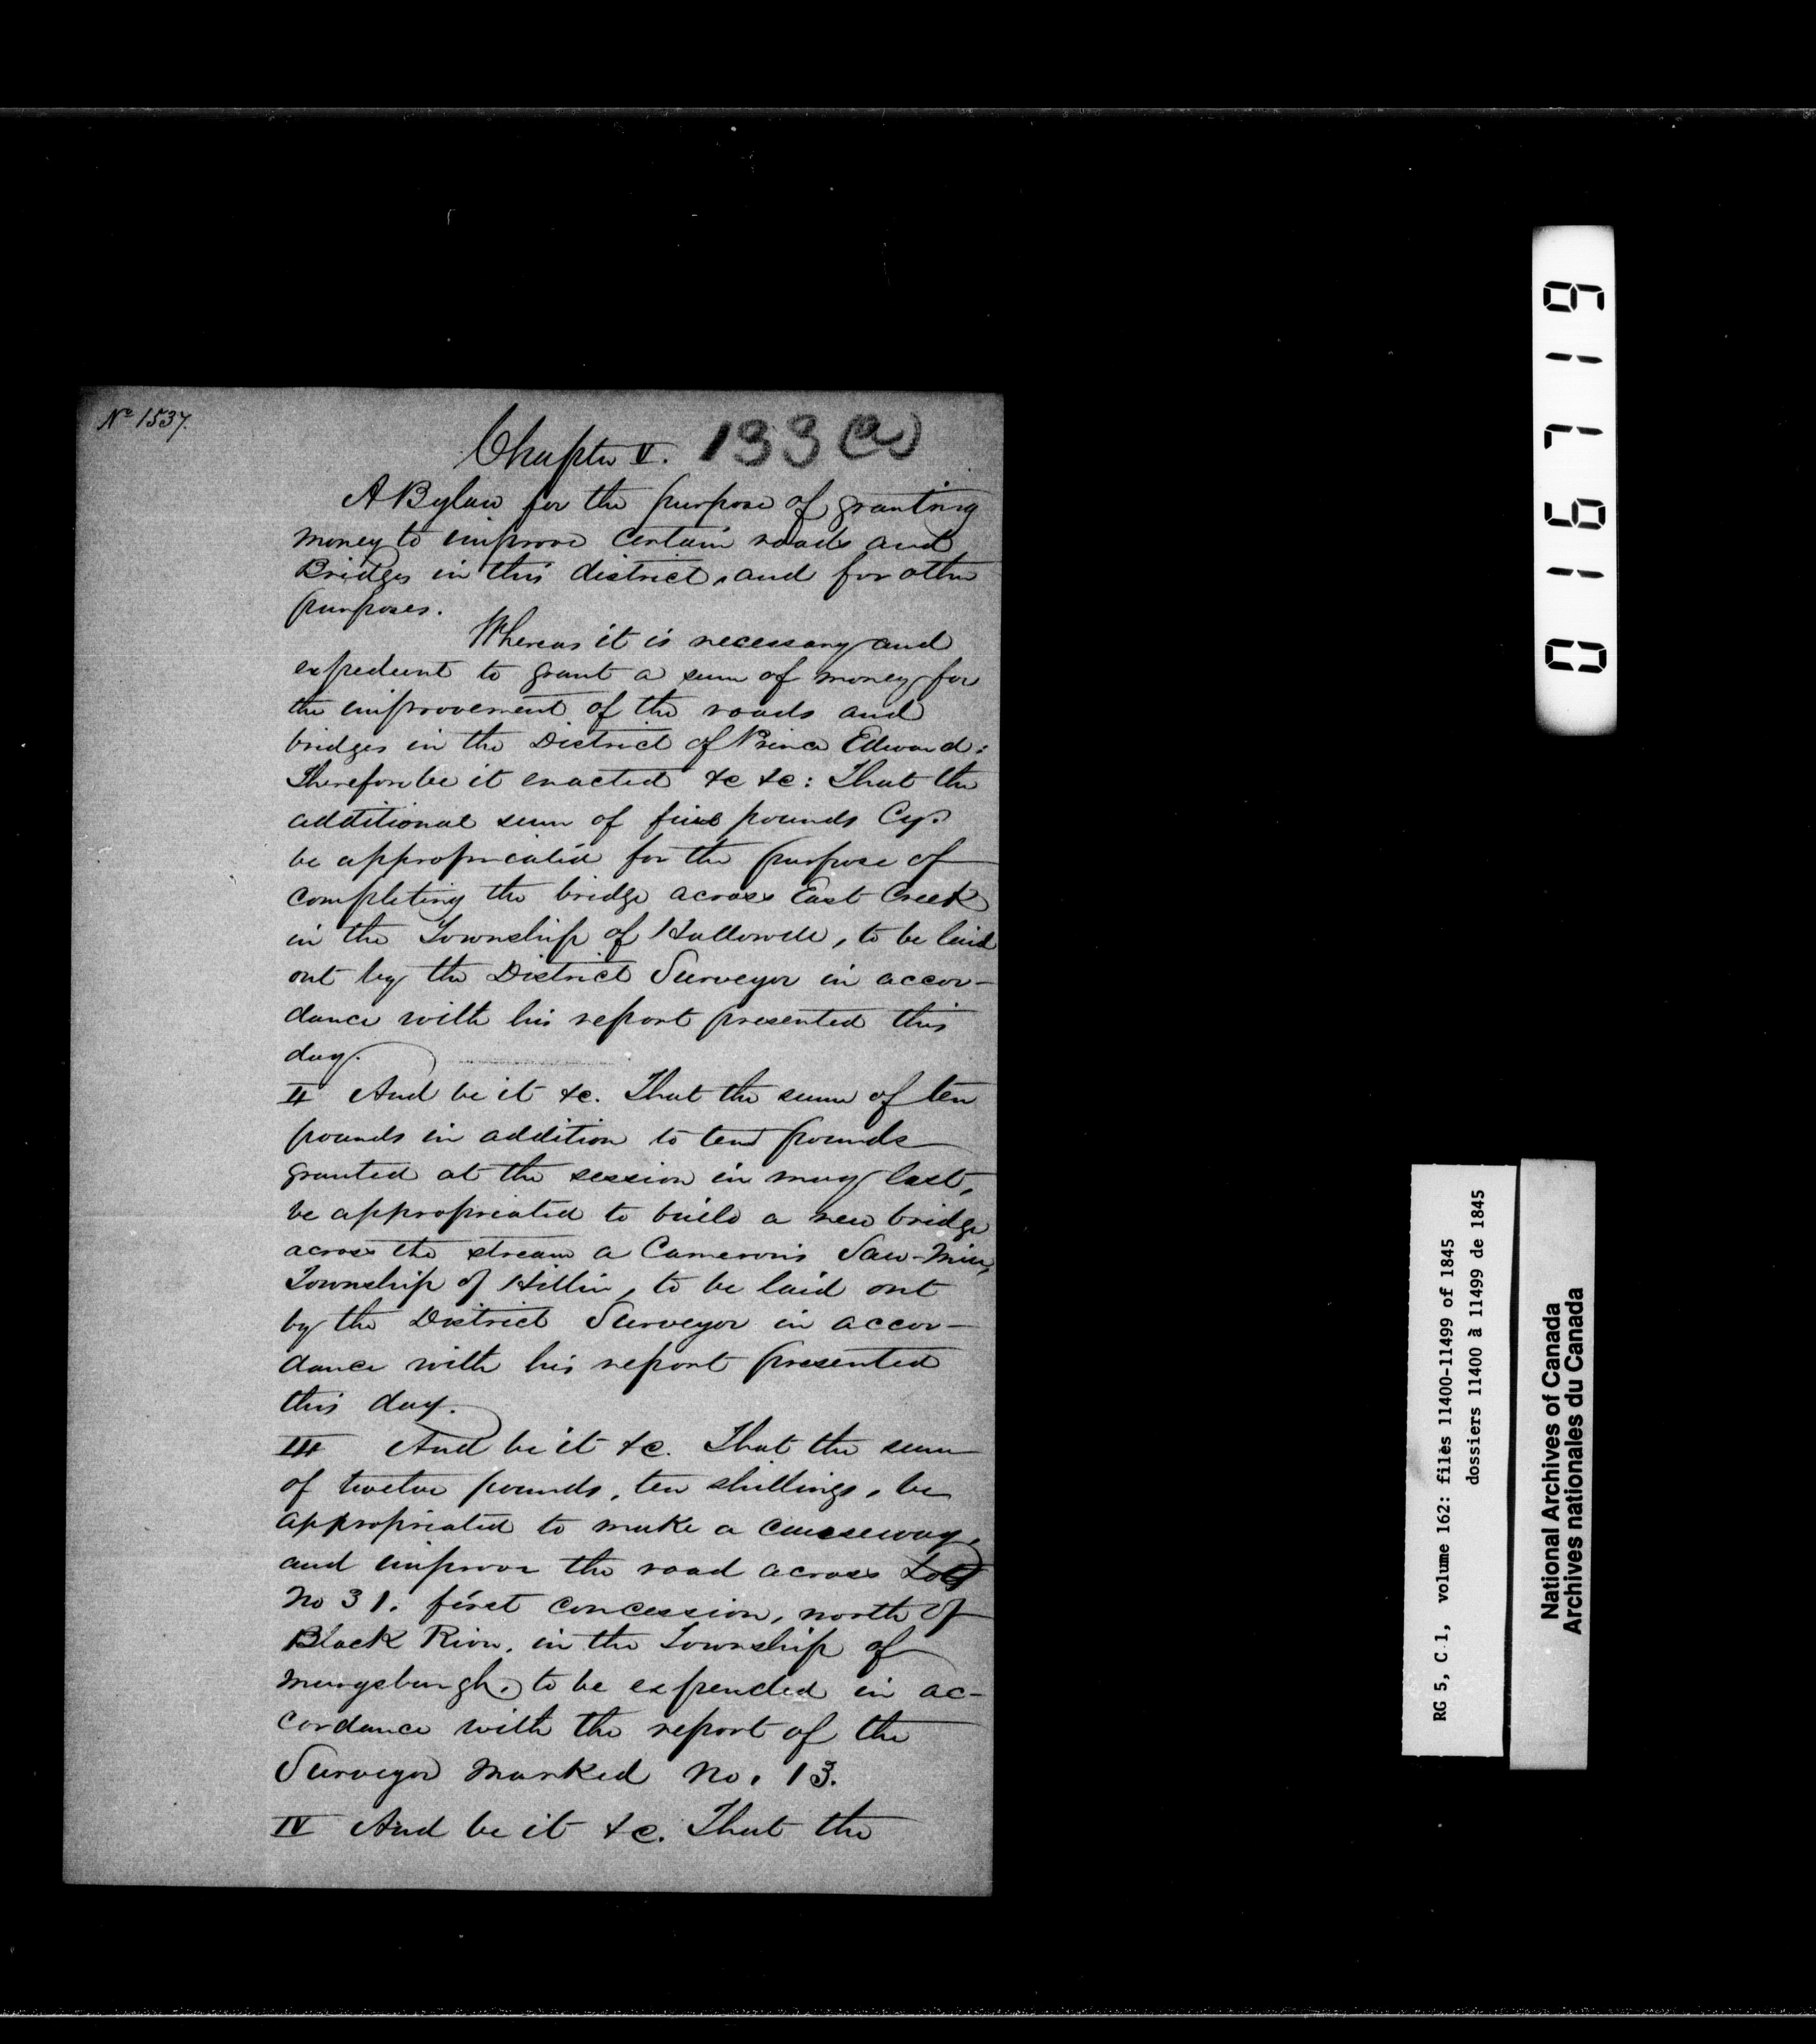 No 1537.
Chapter V. 133(a)
A Bylaw for the purpose of granting
money to improve certain roads and
Bridges in this district, and for other
purposes.
Whereas it is necessary and
expedient to grant a sum of money for
the improvement of the roads and
bridges in the District of Prince Edward:
Therefore be it enacted &c &c: That the
additional sum of five pounds Cy.
be appropriated for the purpose of
completing the bridge across East Creek
in the Township of Hallowell, to be laid
out by the District Surveyor in accor-
dance with his report presented this
day.
II And be it &c. That the sum of ten
pounds in addition to ten pounds
granted at the session in may last,
be appropriated to build a new bridge
across the stream a Cameron's Saw-Mill,
Township of Hillier, to be laid out
by the District Surveyor in accor-
dance with his report presented
this day.
III And be it &c. That the sum
of twelve pounds, ten shillings, be
appropriated to make a causeway,
and improve the road across Lot
No 31. first concession, north of
Black River, in the Township of
Marysburgh, to be expended in ac-
cordance with the report of the
Surveyor marked No. 13.
IV And be it &c. That the
016719
RG 5, C 1, volume 162: files 11400-11499 of 1845
dossiers 11400 à 11499 de 1845
National Archives of Canada
Archives nationales du Canada